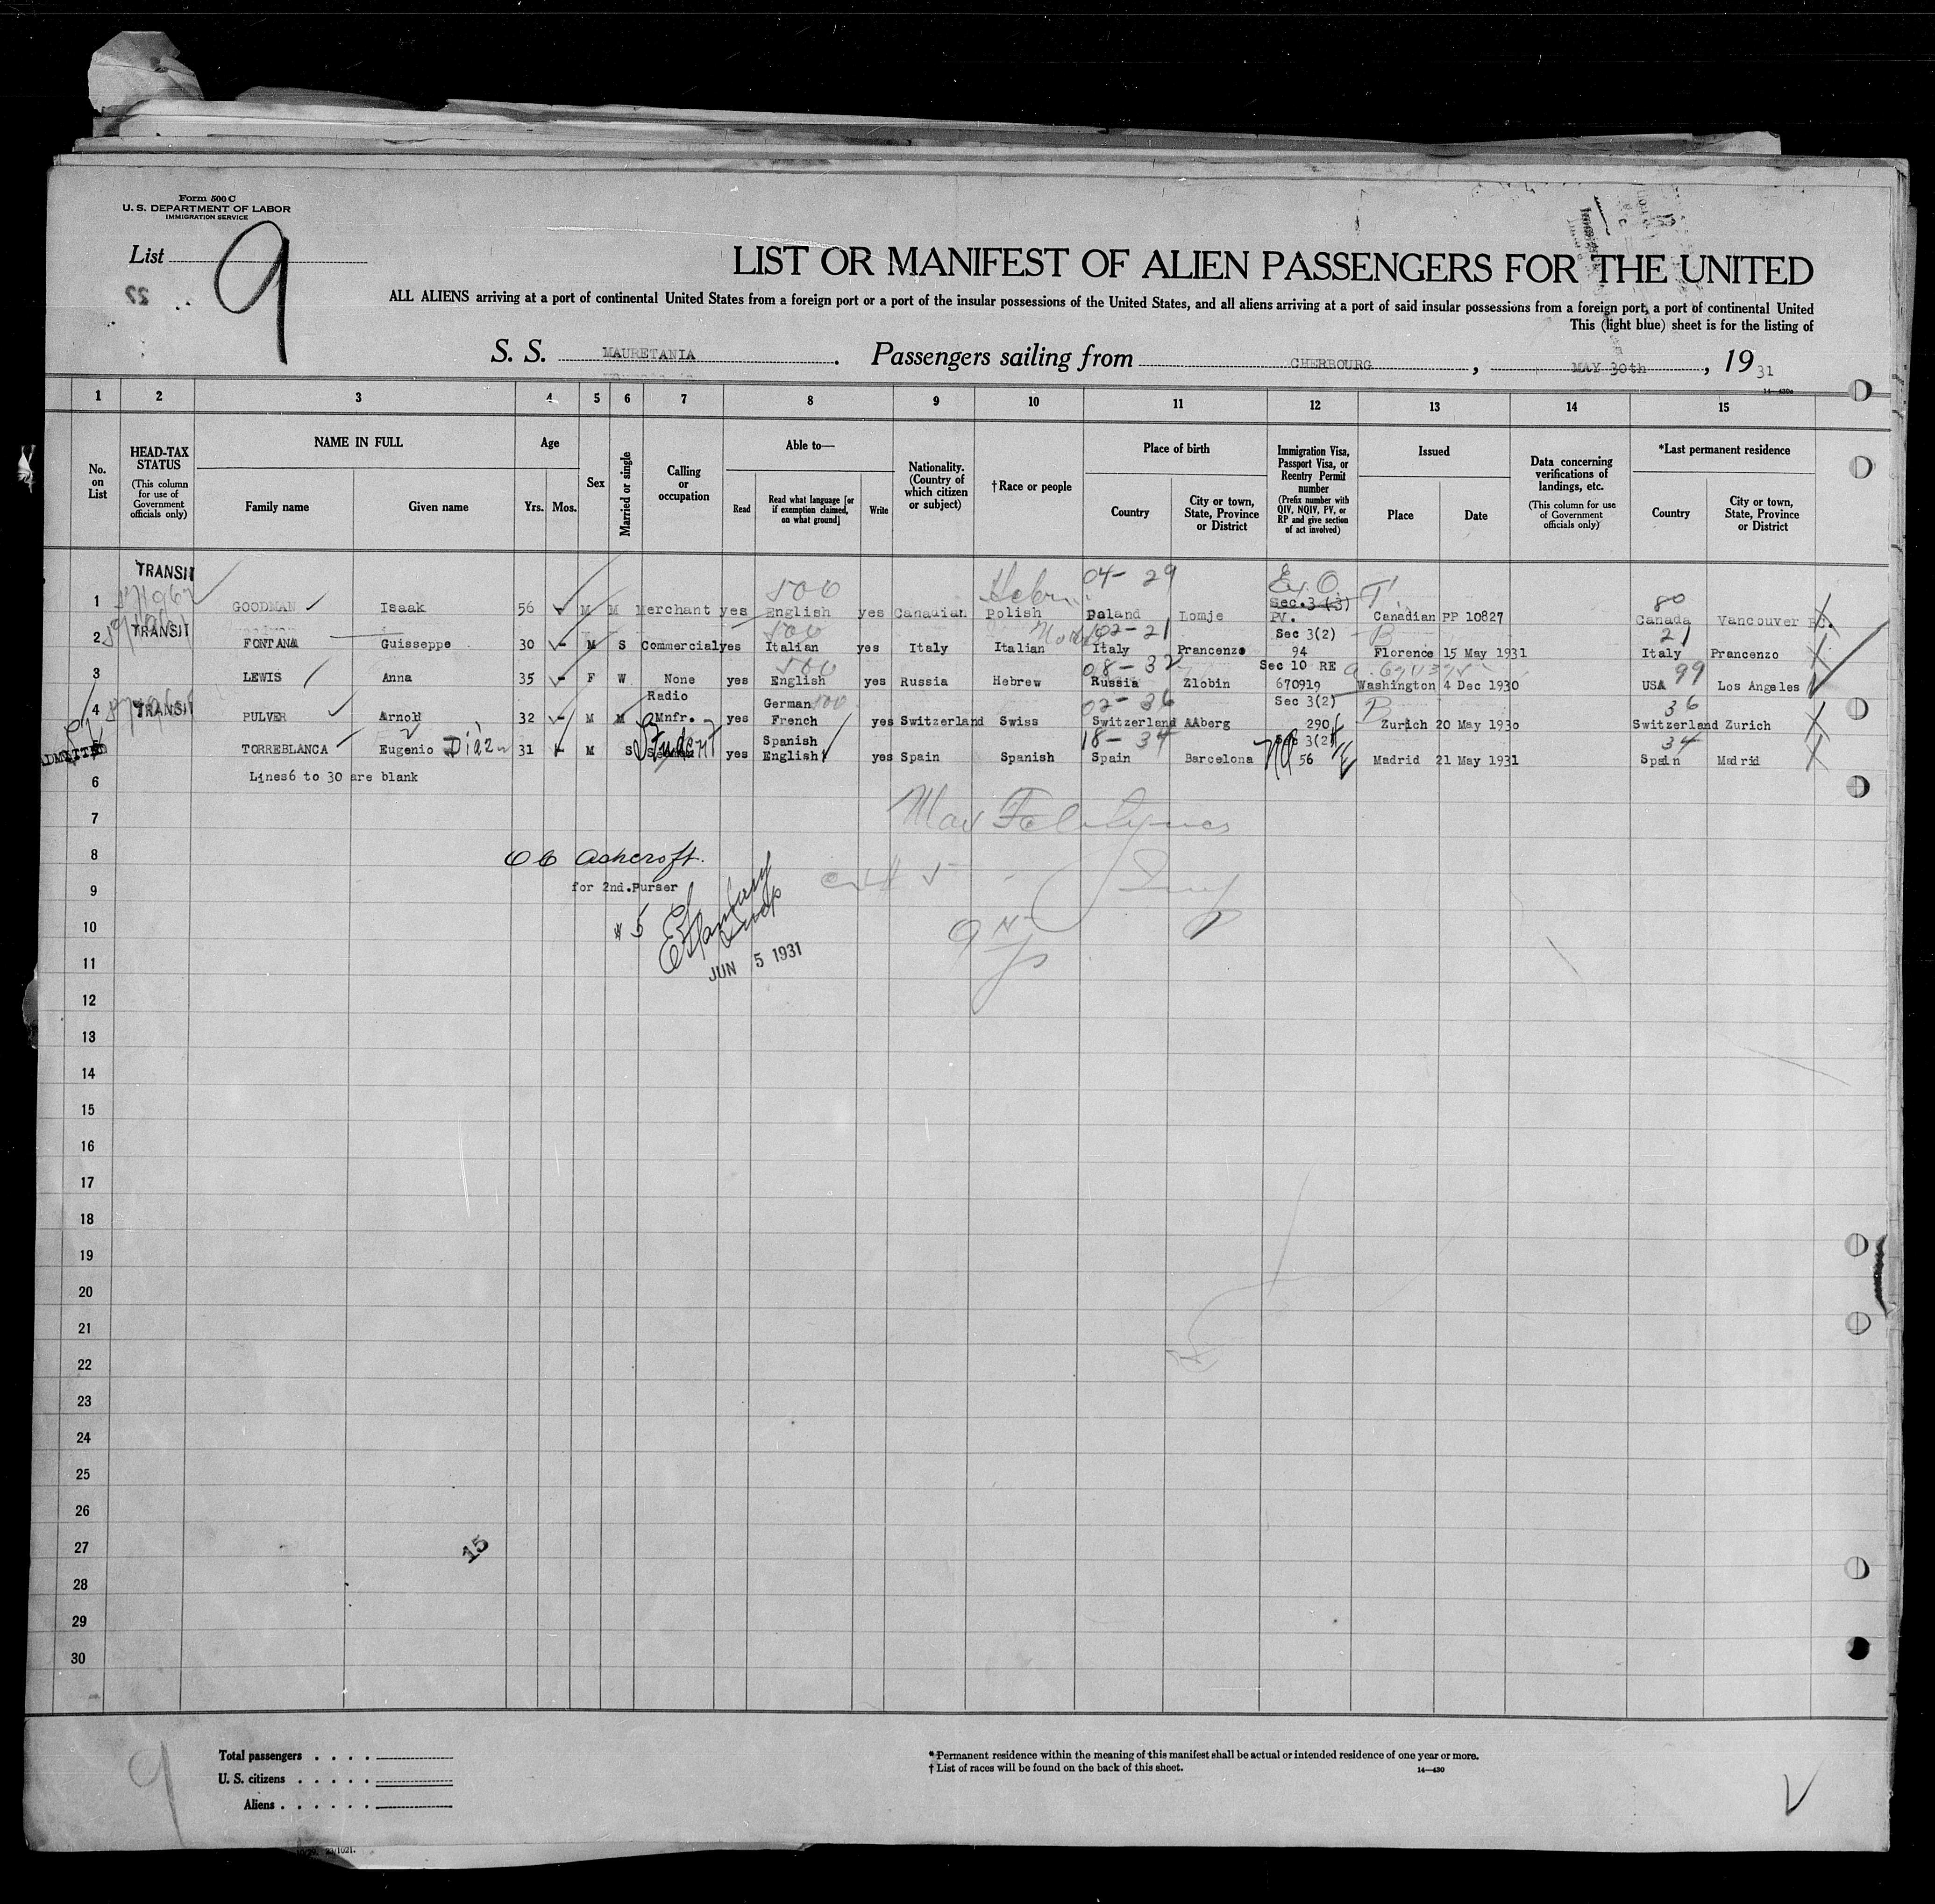 Form 500 C
U. S. DEPARTMENT OF LABOR
IMMIGRATION SERVICE
List 9
22
LIST OR MANIFEST OF ALIEN PASSENGERS FOR THE UNITED
ALL ALIENS arriving at a port of continental United States from a foreign port or a port of the insular possessions of the United States, and all aliens arriving at a port of said insular possessions from a foreign port, a port of continental United
This (light blue) sheet is for the listing of
S. S. MAURETANIA. Passengers sailing from CHERBOURG, MAY 30th, 1931
14—430a
1 2 3 4 5 6 7 8 9 10 11 12 13 14 15
No. on List
HEAD-TAX STATUS
(This column for use of Government officials only)
NAME IN FULL
Family name
Given name
Age
Yrs. Mos.
Sex
Married or single
Calling or occupation
Able to—
Read
Read what language [or if exemption claimed, on what ground]
Write
Nationality. (Country of which citizen or subject)
†Race or people
Place of birth
Country
City or town, State, Province or District
Immigration Visa, Passport Visa, or Reentry Permit number
(Prefix number with QIV, NQIV, PV, or RP and give section of act involved)
Issued
Place
Date
Data concerning verifications of landings, etc.
(This column for use of Government officials only)
*Last permanent residence
Country
City or town, State, Province or District
TRANSIT 500 Hebr 04- 29 Ex. O. T 80
Sec. 3 (3)
1 GOODMAN Isaak 56 M M Merchant yes English yes Canadian Polish Poland Lomje PV. Canadian PP 10827 Canada Vancouver BC.
TRANSIT 500 North 02-21 Sec 3(2) 21
2 FONTANA Guisseppe 30 M S Commercial yes Italian yes Italy Italian Italy Prancenzo 94 Florence 15 May 1931 Italy Prancenzo
500 08-32 Sec 10 RE 99
3 LEWIS Anna 35 F W None yes English yes Russia Hebrew Russia Zlobin 670919 Washington 4 Dec 1930 USA Los Angeles
TRANSIT Radio German 500 02-36 Sec 3(2) 36
4 PULVER Arnold 32 M M Mnfr. yes French yes Switzerland Swiss Switzerland AAberg 290 Zurich 20 May 1930 Switzerland Zurich
ADMITTED Student Spanish 18-34 Sec 3(2) 34
5 TORREBLANCA Eugenio Diaz 31 M S yes English yes Spain Spanish Spain Barcelona 56 Madrid 21 May 1931 Spain Madrid
6 Lines6 to 30 are blank
7
8 Ashcroft.
9 for 2nd.Purser
10 # 5
11 JUN 5 1931
12
13
14
15
16
17
18
19
20
21
22
23
24
25
26
27 15
28
29
30
9
Total passengers
U. S. citizens
Aliens
*Permanent residence within the meaning of this manifest shall be actual or intended residence of one year or more.
†List of races will be found on the back of this sheet.
14—430